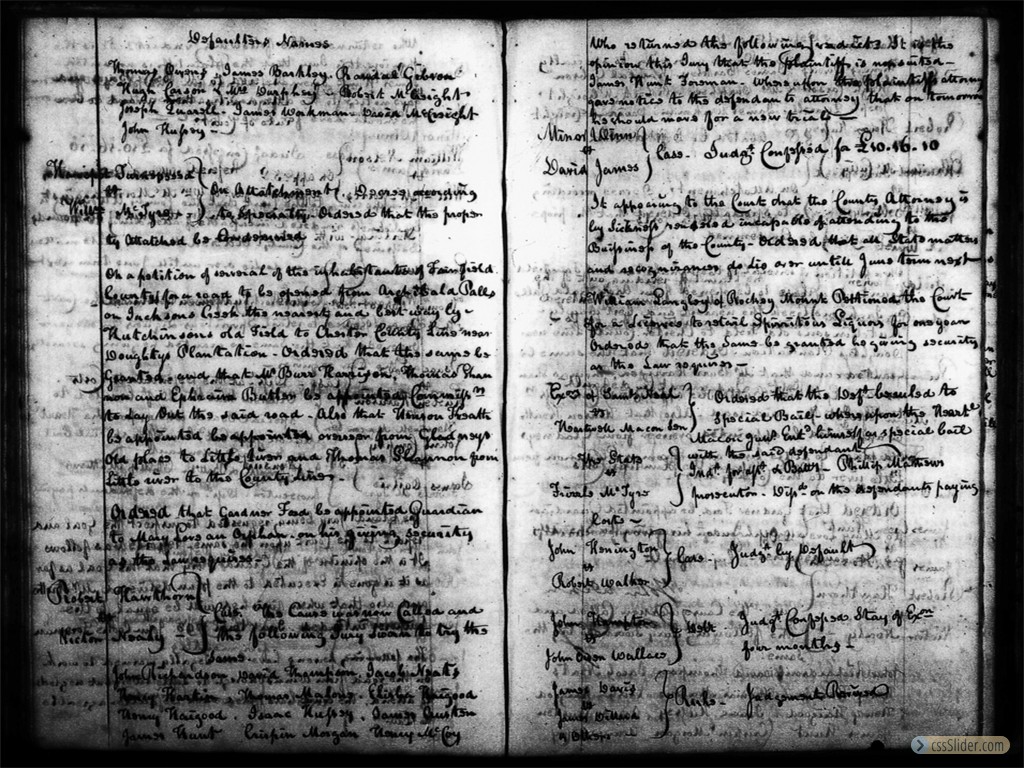 Defaulters Names
Thomas Owens, James Barkley, Randal Gebron
Hugh Carson & Wm Durphey - Robert McCreight
Joseph James Workman David McCreight
John Hussey -
Turnipseed
vs On Attatchment. Decree according
McTyre to Specialty. Ordered that the proper
ty Attatched be Condemned
On a petition of several of the inhabitants of Fairfield
County for a road to be opened from Archibald Palls
on Jacksons Creek the nearest and best way by
Hutchinsons old Field to Chester County Line near
Doughtys Plantation - Ordered that the same be
Granted and that Mr Burr Harrison, Thomas Shan
non and Ephraim Butler be appointed Commissrs
to Lay Out the said road - Also that
be appointed be appointed overseer from Gladneys
Old place to Little river and Thomas Shannon from
Little river to the County Line -
Ordered that Gardner Ford be appointed Guardian
to Mary Love an Orphan - on his giving security
as the law requires -
Robert Hawthorn
vs Case - The Cause was now Called and
Victor Neely the following Jury Sworn to try the
Same
John Richardson, David Thompson, Jacob
Henry Thomas Malone, Elisha Haigood
Henry Haigood, Isaac Hussey, James Austin
James Hunt Crispin Morgan Henry McCoy
Who returned the following verdict It is the
opinion this Jury that the plaintiff is nonsuited -
James Hunt Foreman - Whereupon the plaintiffs attorney
gave notice to the defendants attorney that on tomorrow
he should move for a new trial -
Minor Winn
vs Case - Judgt Confessed for £10.16.10
David James
It appearing to the Court that the County Attorney is
by Sickness rendered incapable of attending to the
Buisiness of the County - Ordered that all State matters
and recognizances do lie over untill June term next
William Langley of Rockey Mount Petitioned the Court
for a Licence to retail Spirituous Liquors for one year
Ordered that the same be granted he giving security
as the Law requires -
Exrs of Ordered that the Deft be ruled to
vs Special Bail - whereupon the
Hartwell Macon Entd himself as special bail
with the said defendant
The State
vs Indt for & Batty - Philip Mathews
McTyre prosecutor - Disd on the defendants paying
Costs -
John
vs Case - Judgt by Default
Robert Walker
John Hampton
vs Debt Judgt Confessed Stay of Exon
John Owen Wallace four months -
James Davis
vs Judgement Revived
James
& Others
cssSlider.com